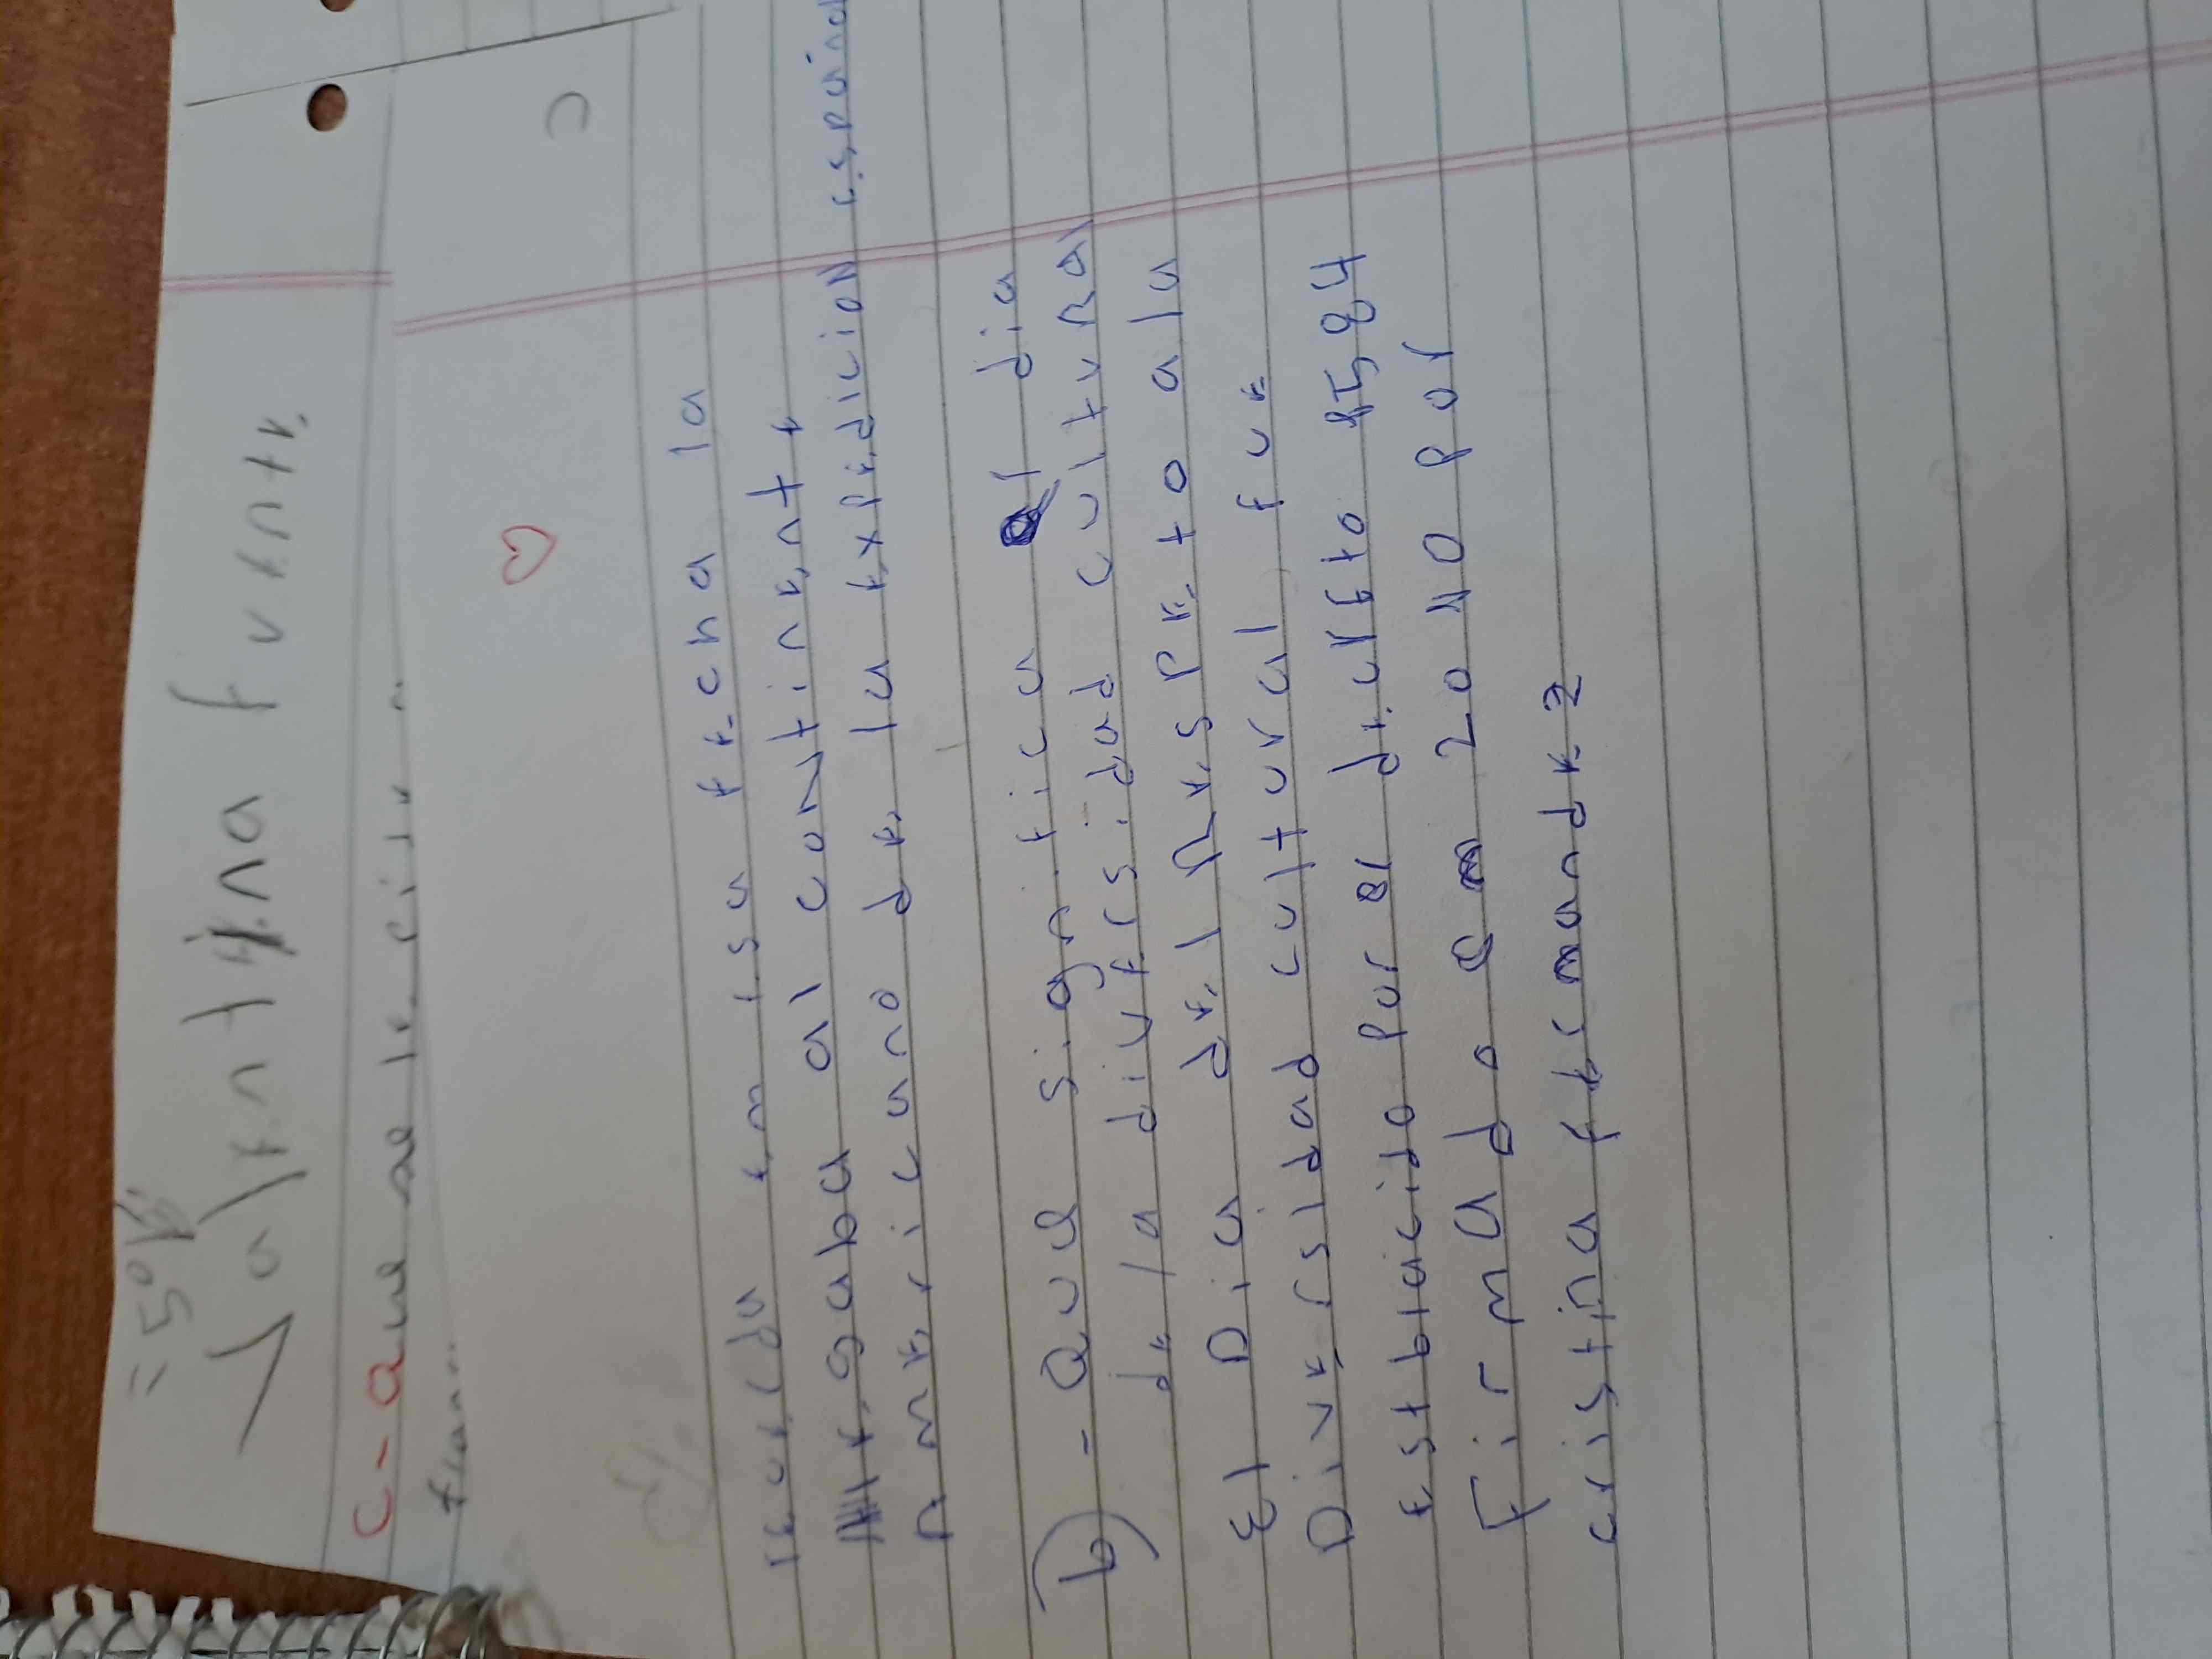 = 5º B
Valentina fuente
C- Que se le
recuerda em esa fecha la
llegaba al continente
Americano de la expedicion espaina
b) - Que significa el dia
de la diversidad cultural
El Dia del Respeto a la
Diversidad cultural fue
establacido por el decreto 1584
Firmado en 2010 por
cristina fernandez